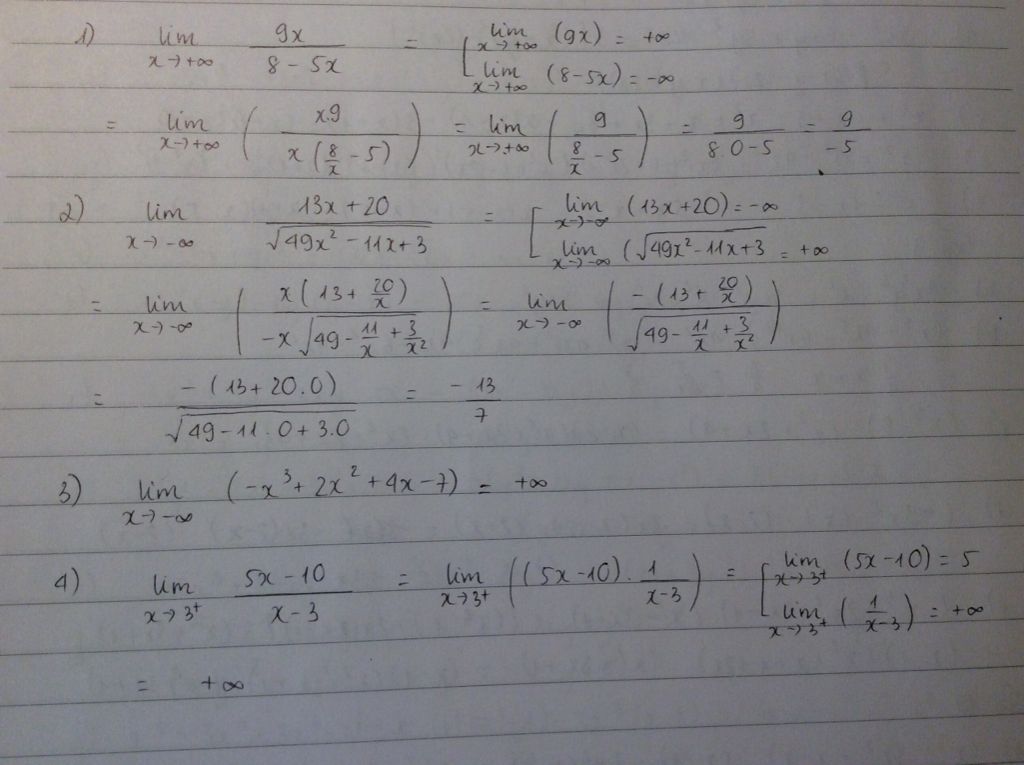 1) lim x→+∞ 9x / (8 - 5x) = [ lim x→+∞ (9x) = +∞
lim x→+∞ (8-5x) = -∞
= lim x→+∞ ( x.9 / x(8/x - 5) ) = lim x→+∞ ( 9 / (8/x - 5) ) = 9 / (8.0-5) = 9 / -5
2) lim x→-∞ (13x + 20) / √(49x² - 11x + 3) = [ lim x→-∞ (13x+20) = -∞
lim x→-∞ (√(49x² - 11x + 3) = +∞
= lim x→-∞ ( x(13 + 20/x) / -x√(49 - 11/x + 3/x²) ) = lim x→-∞ ( -(13 + 20/x) / √(49 - 11/x + 3/x²) )
= -(13 + 20.0) / √(49 - 11.0 + 3.0) = -13 / 7
3) lim x→-∞ (-x³ + 2x² + 4x - 7) = +∞
4) lim x→3⁺ (5x - 10) / (x - 3) = lim x→3⁺ ((5x-10) . 1/(x-3)) = [ lim x→3⁺ (5x-10) = 5
lim x→3⁺ (1/(x-3)) = +∞
= +∞